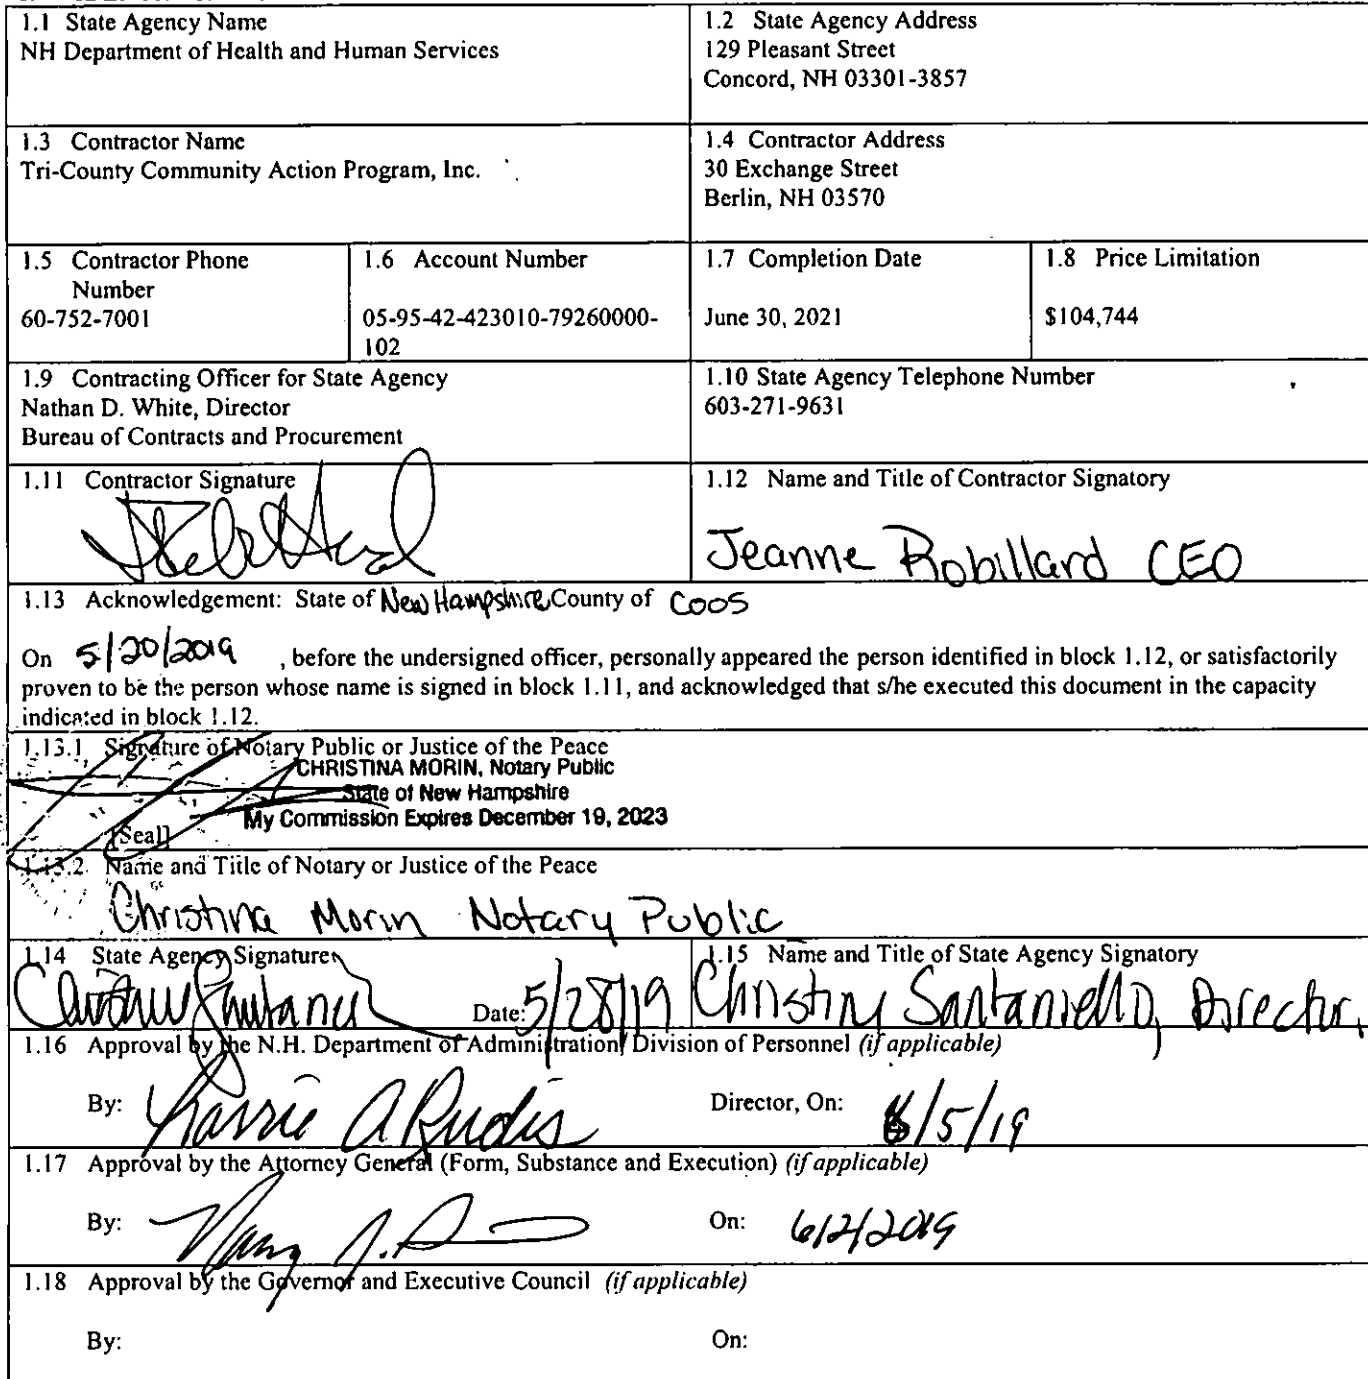 1.1 State Agency Name
NH Department of Health and Human Services
1.2 State Agency Address
129 Pleasant Street
Concord, NH 03301-3857
1.3 Contractor Name
Tri-County Community Action Program, Inc.
1.4 Contractor Address
30 Exchange Street
Berlin, NH 03570
1.5 Contractor Phone
Number
60-752-7001
1.6 Account Number
05-95-42-423010-79260000-
102
1.7 Completion Date
June 30, 2021
1.8 Price Limitation
$104,744
1.9 Contracting Officer for State Agency
Nathan D. White, Director
Bureau of Contracts and Procurement
1.10 State Agency Telephone Number
603-271-9631
1.11 Contractor Signature
1.12 Name and Title of Contractor Signatory
Jeanne Robillard CEO
1.13 Acknowledgement: State of New Hampshire County of Coos
On 5/20/2019 , before the undersigned officer, personally appeared the person identified in block 1.12, or satisfactorily
proven to be the person whose name is signed in block 1.11, and acknowledged that s/he executed this document in the capacity
indicated in block 1.12.
1.13.1 Signature of Notary Public or Justice of the Peace
CHRISTINA MORIN, Notary Public
State of New Hampshire
My Commission Expires December 19, 2023
[Seal]
1.13.2 Name and Title of Notary or Justice of the Peace
Christina Morin Notary Public
1.14 State Agency Signature
Date: 5/28/19
1.15 Name and Title of State Agency Signatory
Christine Santaniello, Director,
1.16 Approval by the N.H. Department of Administration, Division of Personnel (if applicable)
By:
Director, On: 6/5/19
1.17 Approval by the Attorney General (Form, Substance and Execution) (if applicable)
By:
On: 6/2/2019
1.18 Approval by the Governor and Executive Council (if applicable)
By:
On: